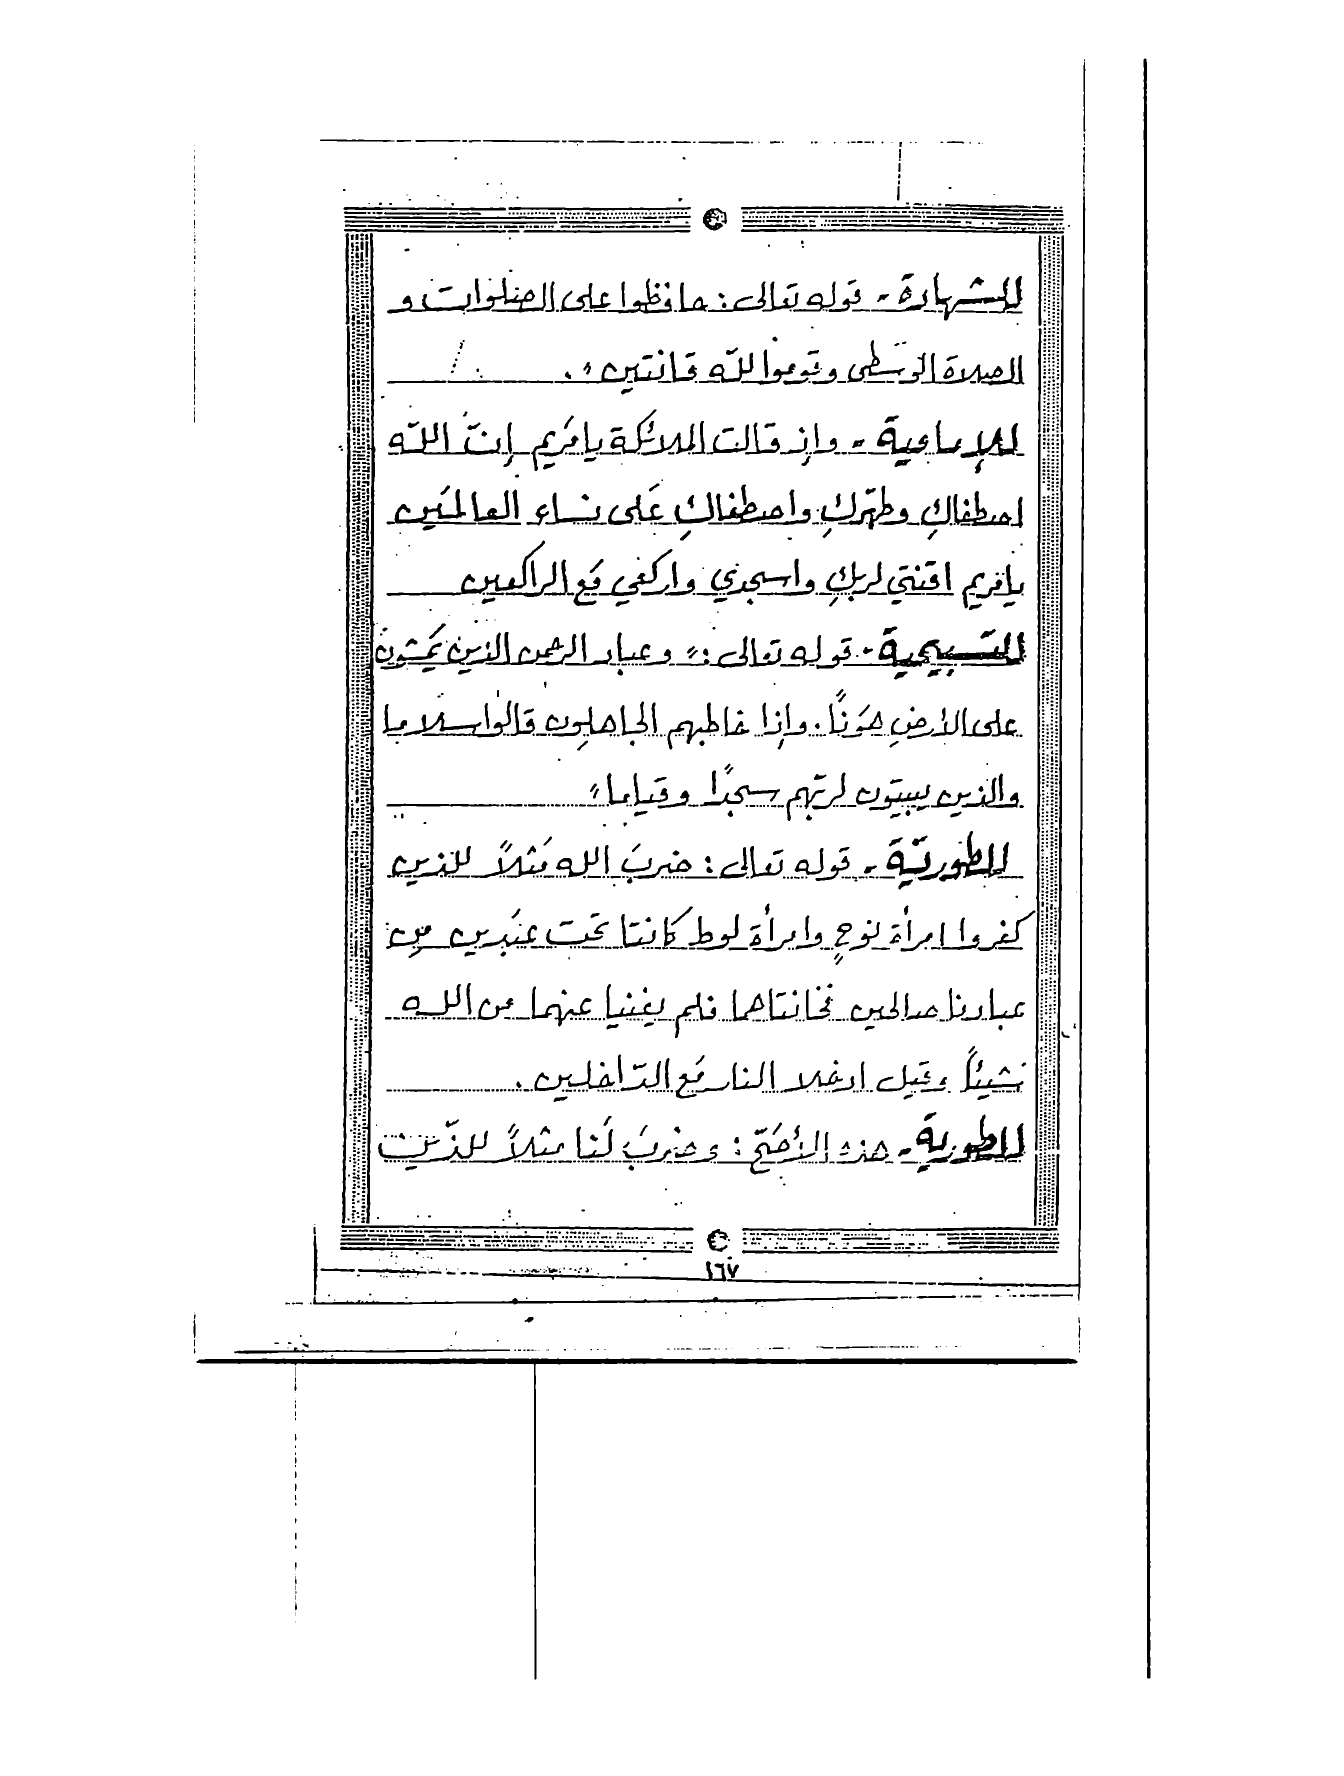 للشهادة - قوله تعالى : حافظوا على الصلوات و
الصلاة الوسطى وقوموا لله قانتين " .
للإمامية - وإذ قالت الملائكة يا مَريم إنّ اللّه
اصطفاكِ وطهّركِ واصطفاكِ عَلى نساءِ العالمَين
يا مَريم اقنتي لربكِ واسجدي واركعي مَع الراكعين
للتسبيحية - قوله تعالى : " وعباد الرحمن الذين يَمشون
على الأرضِ هَوناً . وإذا خاطبهم الجاهلون قالوا سلاما
والذين يبيتون لربّهم سجّداً وقياما "
للطوريّة - قوله تعالى : ضربَ الله مَثلاً للذين
كفروا امرأة نوحٍ وامرأة لوط كانتا تَحت عبَدين مِن
عبادنا صالحين فخانتاهما فلم يغنيا عنهما من الله
شيئاً وقيل ادخلا النار مَع الدّاخلين .
للطورية - هذه الأصَحّ : وضربَ لَنا مثلاً للذّين
١٦٧